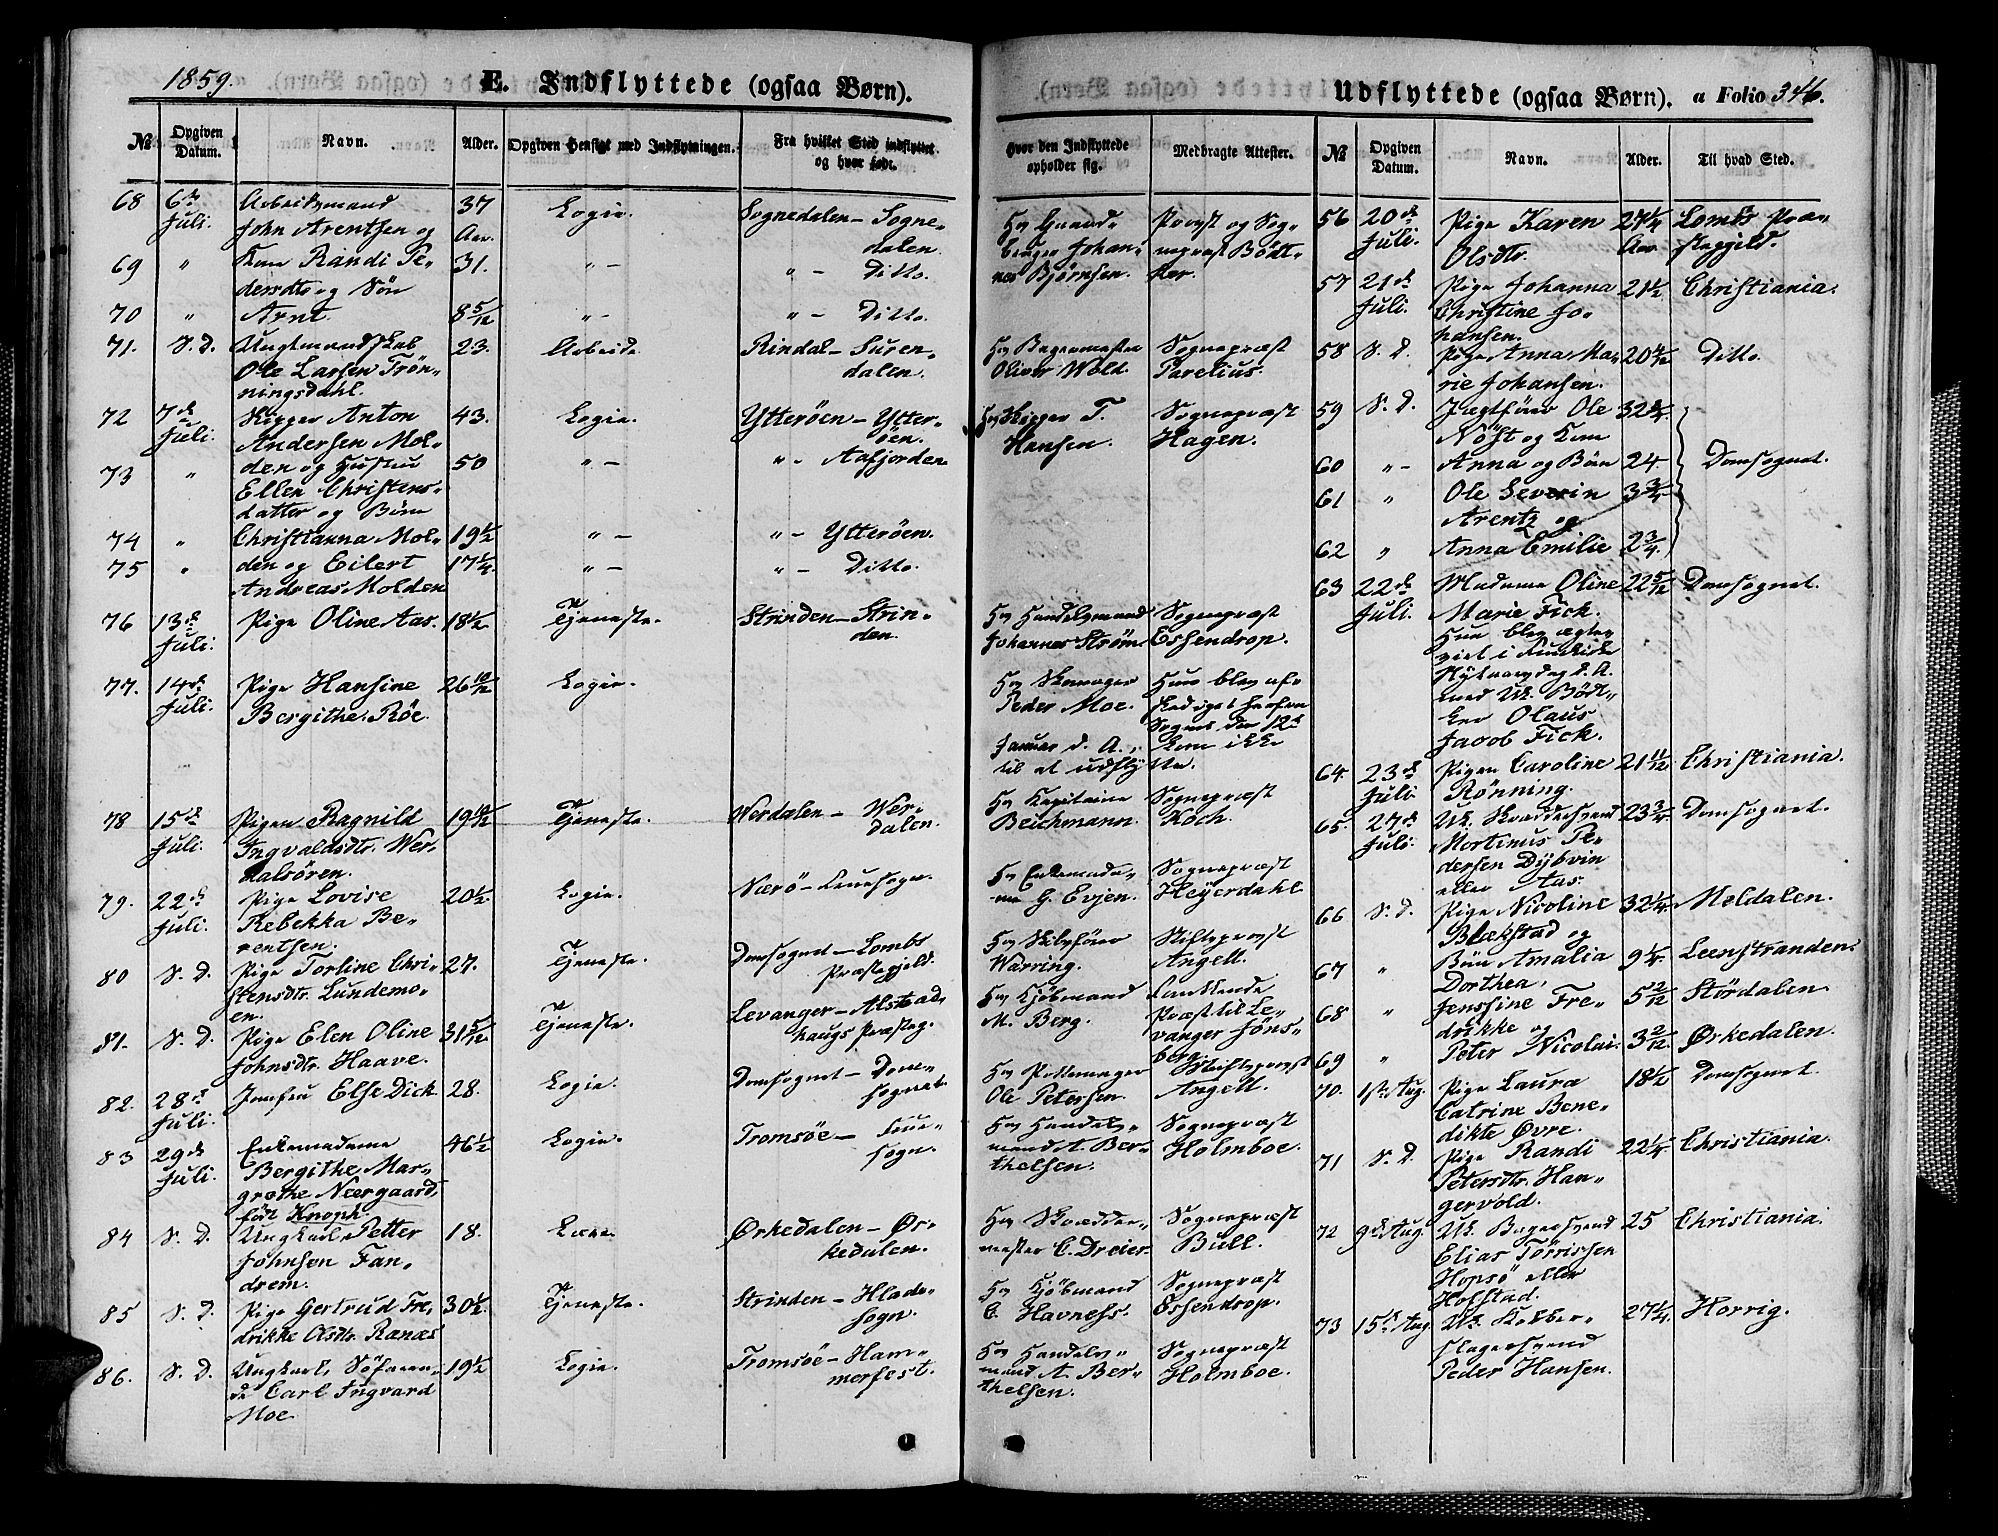 1859.
E. Indflyttede (ogsaa Børn).
№ Opgiven Datum. Navn. Alder. Opgiven Hensigt med Indflytningen. Fra hvilket Sted indflyttet og hvor født. Hvor den Indflyttede opholder sig. Medbragte Attester.
68 6te Juli. Arbeidsmand John Arentsen og 37 Aar. Logie. Sognedalen – Sognedalen. Hos Gaardbruger Johannes Bjørnsen. Provst og Sognepræst Bödtker.
69 " Kone Randi Pedersdtr og Sön 31. " – " – Ditto.
70 " Arnt. 8 5/12 " – " – Ditto.
71. S. D. Ungkarl Ole Larsen Trönningsdahl. 23. Arbeide. Rindal – Surendalen. Hos Bagermester Oliver Wold. Sognepræst Parelius.
72 7de Juli. Skipper Anton Andersen Mol- 43. Logie. Ytteröen – Ytteröen. Hos Skipper T. Hansen. Sognepræst Hagen.
73 " den og Hustru Ellen Christensdatter og Börn 50 " – " – Aafjorden
74 " Christianna Mol- 19 1/2 " – " – Ytteröen.
75 " den og Eilert Andreas Molden 17 1/4. " – " – Ditto.
76 13de Juli. Pige Oline Aas. 18 1/2. Tjeneste. Strinden – Strinden. Hos Handelsmand Johannes Ström. Sognepræst Essendrop.
77. 14de Juli. Pige Hansine Bergithe Röe. 26 10/12 Logie. Hos Skomager Peder Moe. Hun blev af- herfra Sognet den 12te Januar d. A., kom ikke til at udflytte.
78 15de Juli. Pigen Ragnild Ingvaldsdtr. Werdalsören. 19 10/12 Tjeneste. Werdalen – Werdalen. Hos Kapitaine Beichmann. Sognepræst Koch.
79. 22de Juli. Pige Lovise Rebekka Berentsen. 20 1/2. Logie. Nærö – Fruesogn. Hos Enkemadame G. Evjen. Sognepræst Heyerdahl
80 S. D. Pige Torline Christensdtr. Lundemoen. 27. Tjeneste. Domsognet – Lombs Præstegjeld. Hos Skibsförer Warring. Stiftsprovst Angell.
81. S. D. Pige Elen Oline Johnsdtr. Haave. 31 5/12. Tjeneste. Levanger – Alstadhaugs Præsteg. Hos Kjöbmand M. Berg. Præst til Levanger Jönsberg.
82. 28de Juli. Jomfru Else Dick 28. Logie. Domsognet – Domsognet. Hos Pottemager Ole Petersen. Stiftsprovst Angell.
83 29de Juli. Enkemadame Bergithe Margrethe Neergaard, födt Knoph. 46 1/2 Logie. Tromsöe – Fruesogn. Hos Handelsmand A. Berthelsen. Sognepræst Holmboe.
84 S. D. Ungkarl Petter Johnsen Fandrem. 18. Lære. Ørkedalen – Ørkedalen. Hos Skræddermester C. Dreier. Sognepræst Bull.
85 S. D. Pige Gertrud Fredrikke Olsdtr. Ranæs 30 1/2. Tjeneste. Strinden – Hladesogn. Hos Kjöbmand C. Havness. Sognepræst Essendrop.
86. S. D. Ungkarl, Söfarende Carl Ingvard Moe 19 1/2 Logie. Tromsöe – Hammerfest. Hos Handelsmand A. Berthelsen. Sognepræst Holmboe.
Udflyttede (ogsaa Børn). a Folio 346.
№ Opgiven Datum. Navn. Alder. Til hvad Sted.
56 20de Juli. Pige Karen Olsdtr. 27 1/4 Aar Lombs Præstegjeld.
57 21de Juli. Pige Johanna Christine Johansen. 21 1/2 Christiania.
58 S. D. Pige Anna Marie Johansen. 20 4/12 Ditto.
59 S. D. Jagtförer Ole Nöst og Kone 32 3/4 Domsognet.
60 " – Anna og Börn 24.
61 " Ole Severin Arentz og 3 3/4
62 " Anna Emilie 2 3/4.
63 22de Juli. Madame Oline Marie Fick. 22 5/12 Domsognet.
Hun blev ægteviet i Nytaarsdag d. A. med Uk. Bödtker Olaus Jacob Fick.
64 23de Juli. Pigen Caroline Rönning. 21 11/12 Christiania.
65. 27de Juli. Uk. Skræddersvend Mortinus Pedersen Dybvin eller Aas. 23 3/4 Domsognet.
66 S. D. Pige Nicoline Blekstad og 32 1/4. Meldalen.
67 " Börn Amalia Dorthea, 9 1/4. Leenstranden.
68 " Jensine Fredrikke og 5 2/12 Stördalen.
69 " Peter Nicolai. 3 2/12. Ørkedalen.
70. 1ste Aug. Pige Laura Catrine Benedikte Øvre. 18 1/2 Domsognet.
71 S. D. Pige Randi Petersdtr. Hangervold. 22 1/4 Christiania.
72 9de Aug. Uk. Bagersvend Elias Törrissen Hopsö eller Hofstad. 25 Christiania.
73 15de Aug Uk. Kobberslagersvend Peder Hansen. 27 1/4. Horrig.